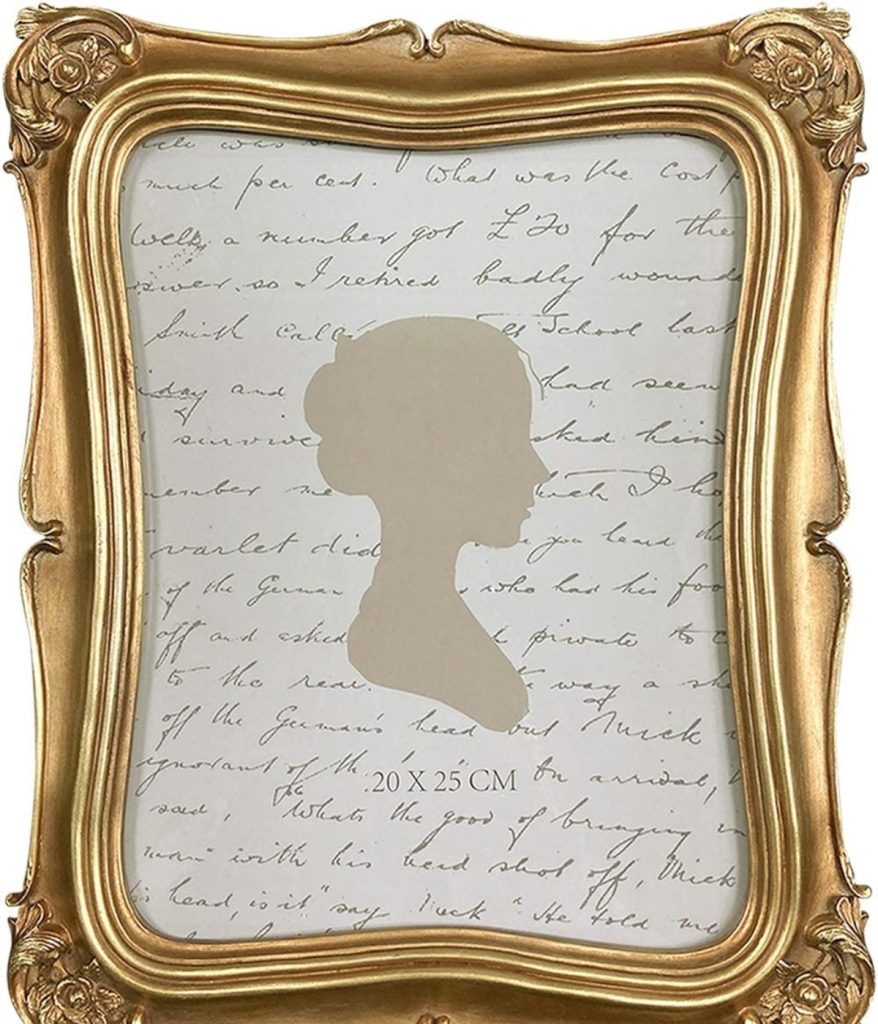 was
much per cent. What was the cost
Well, a number got £20 for the
so I retired badly wounde
Smith call School last
day and had seen
survive sked kind
member me which I ho
varlet did you heard the
of the German who had his foo
off and asked private to c
to the rear. way a she
off the German's head but Mick
ignorant of th On arrival,
20 X 25 CM
said, "Whats the good of bringing
man" with his head shot off, Mick
his head, is it" say Mick "He told me